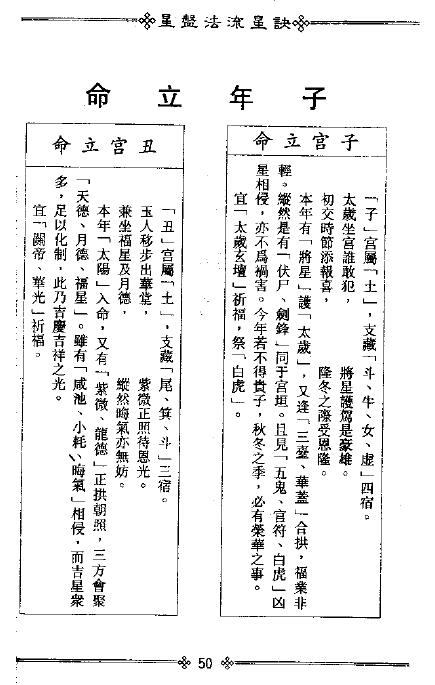 星盤法流星訣
子年立命
子宮立命
「子」宮屬「土」，支藏「斗、牛、女、虛」四宿。
太歲坐宮誰敢犯，　將星護駕是豪雄。
初交時節添報喜，　隆冬之際受恩隆。
本年有「將星」護「太歲」，又逢「三臺、華蓋」合拱，福業非
輕。縱然是有「伏尸、劍鋒」同于宮垣。且見「五鬼、官符、白虎」凶
星相侵，亦不爲禍害。今年若不得貴子，秋冬之季，必有榮華之事。
宜「太歲玄壇」祈福，祭「白虎」。
丑宮立命
「丑」宮屬「土」，支藏「尾、箕、斗」三宿。
玉人移步出華堂，　紫微正照待恩光。
兼坐福星及月德，　縱然晦氣亦無妨。
本年「太陽」入命，又有「紫微、龍德」正拱朝照，三方會聚
「天德、月德、福星」。雖有「咸池、小耗、晦氣」相侵，而吉星衆
多，足以化制，此乃吉慶吉祥之光。
宜「關帝、華光」祈福。
50